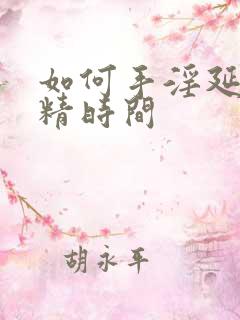 如何手淫延
精時間
胡永平